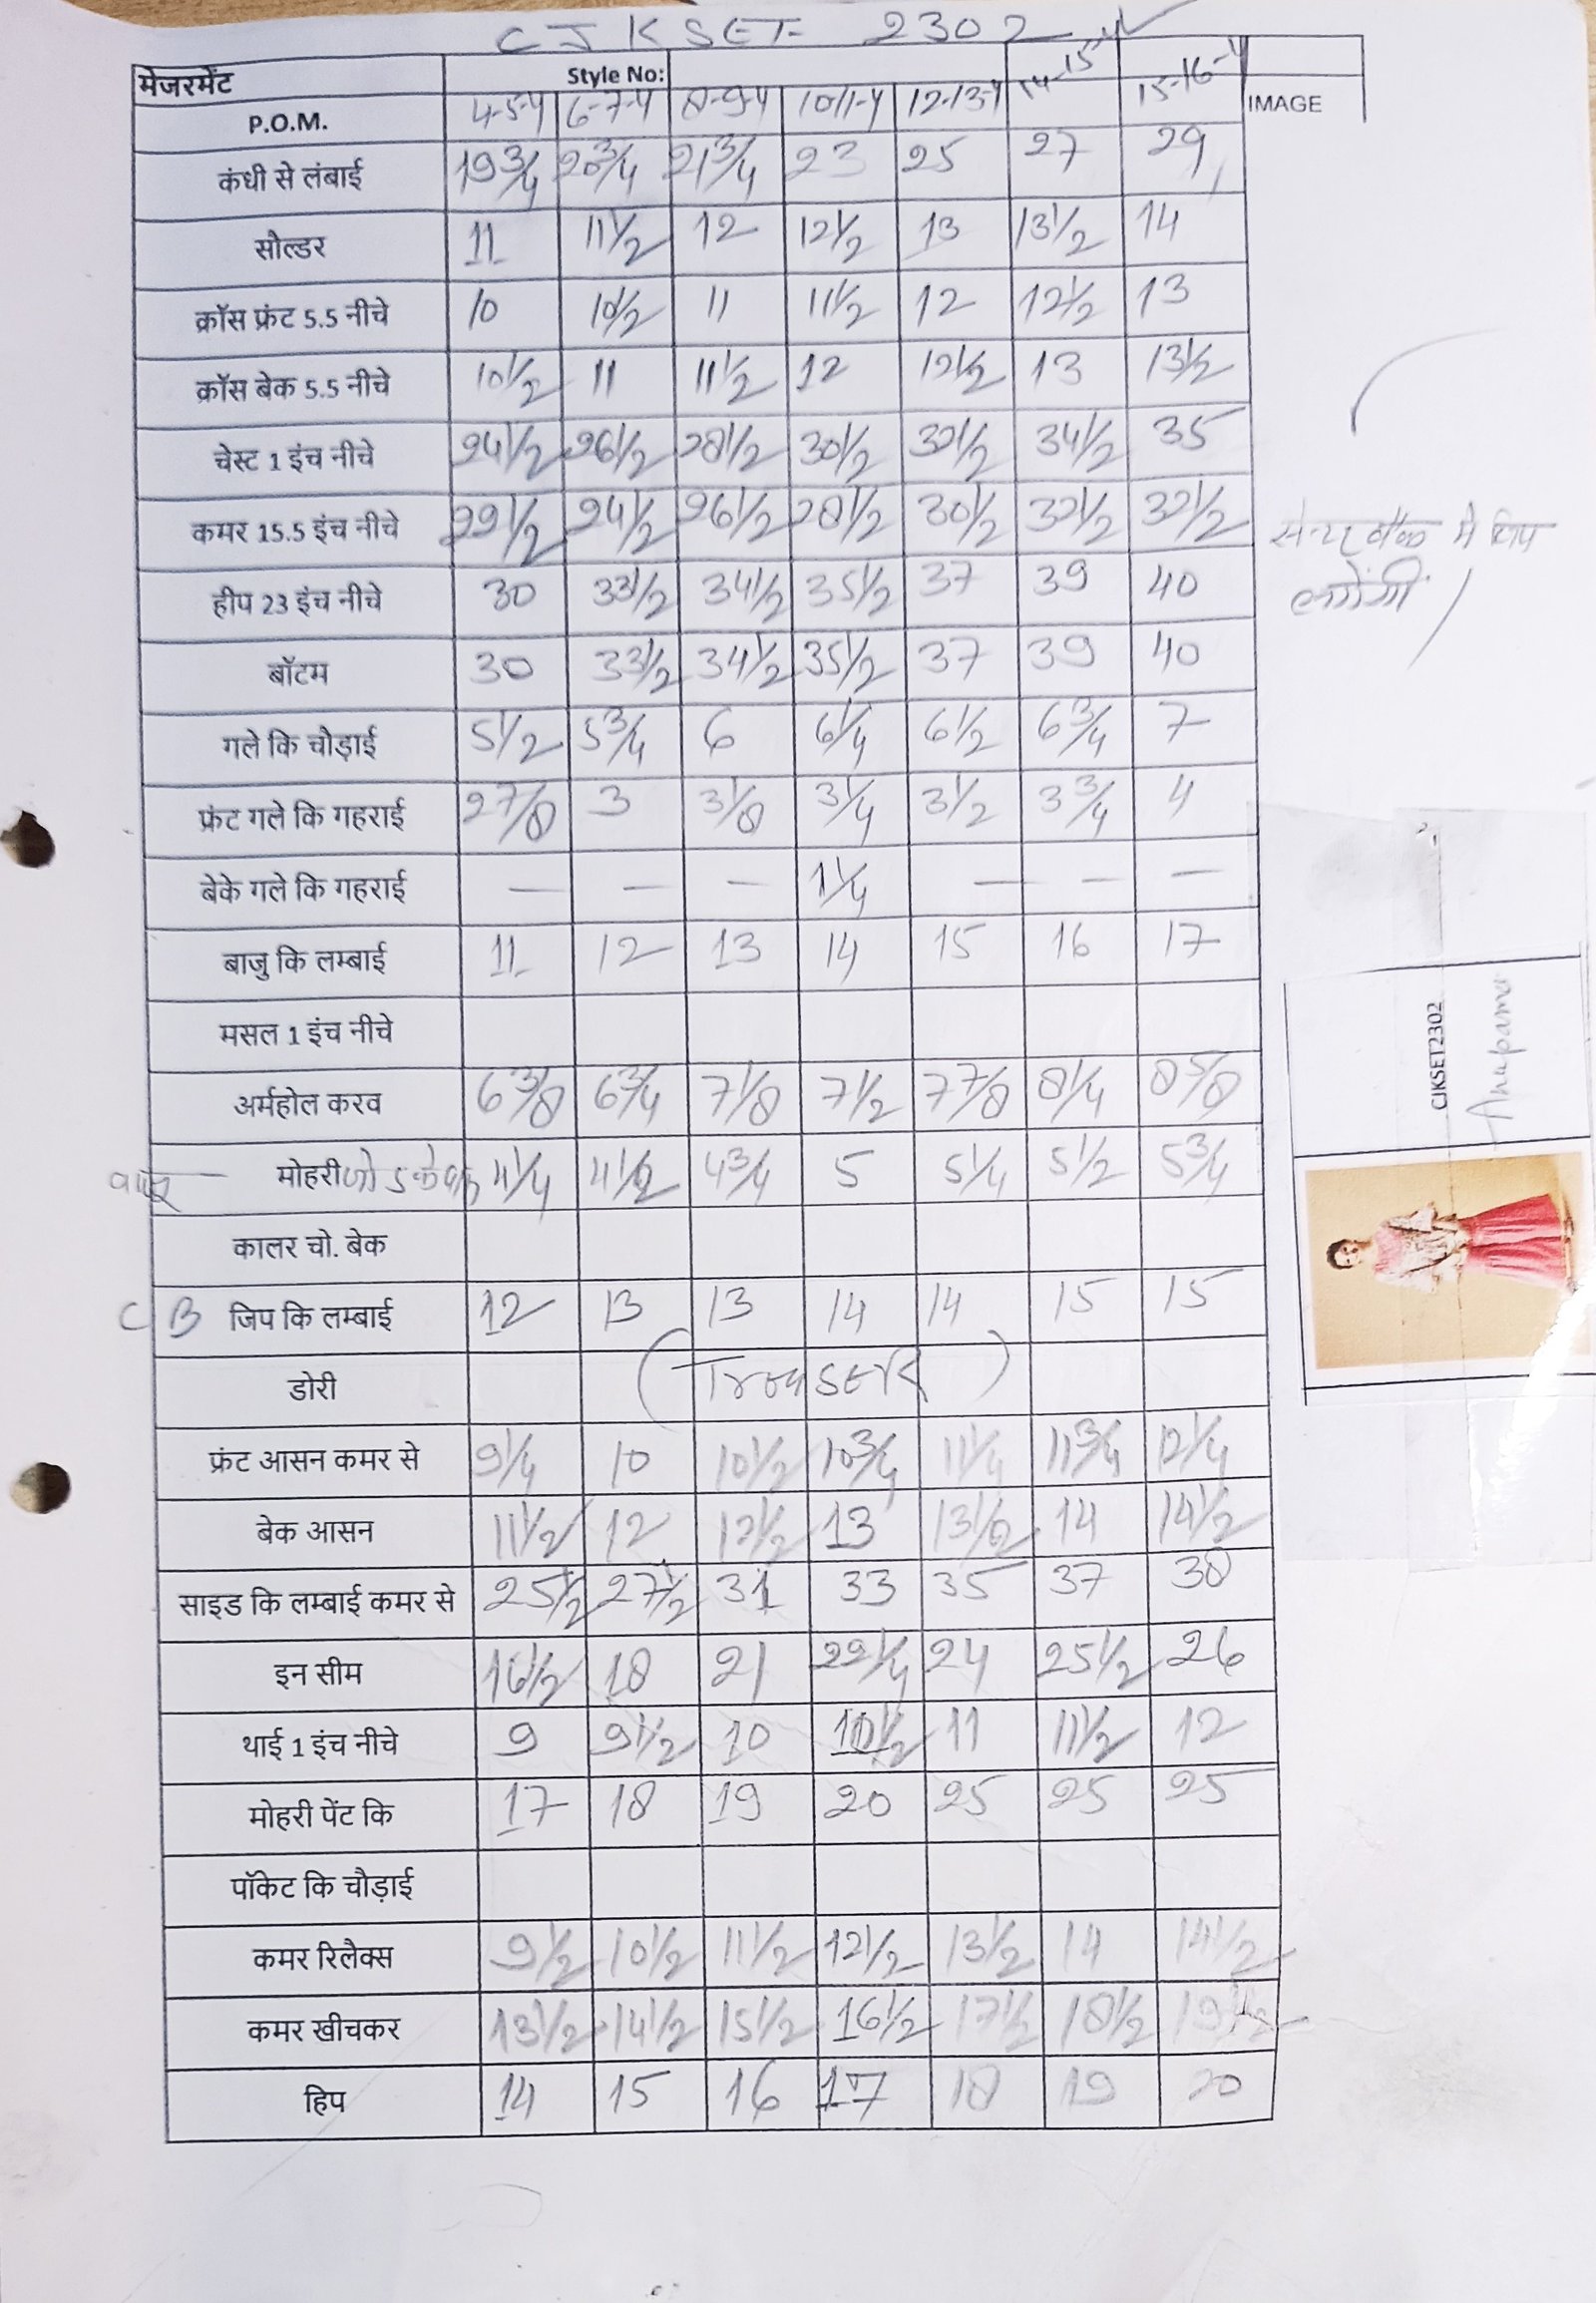 CJKSET- 2302
मेजरमेंट Style No:
P.O.M. 4-5-Y 6-7-Y 8-9-Y 10-11-Y 12-13-Y 14-15-Y 15-16-Y IMAGE
कंधी से लंबाई 19 3/4 20 3/4 21 3/4 23 25 27 29
सोल्डर 11 11 1/2 12 12 1/2 13 13 1/2 14
क्रॉस फ्रंट 5.5 नीचे 10 10 1/2 11 11 1/2 12 12 1/2 13
क्रॉस बेक 5.5 नीचे 10 1/2 11 11 1/2 12 12 1/2 13 13 1/2
चेस्ट 1 इंच नीचे 24 1/2 26 1/2 28 1/2 30 1/2 32 1/2 34 1/2 35
कमर 15.5 इंच नीचे 22 1/2 24 1/2 26 1/2 28 1/2 30 1/2 32 1/2 32 1/2
सेन्टर बैक मे जिप
लगेंगी
हीप 23 इंच नीचे 30 33 1/2 34 1/2 35 1/2 37 39 40
बॉटम 30 33 1/2 34 1/2 35 1/2 37 39 40
गले कि चोड़ाई 5 1/2 5 3/4 6 6 1/4 6 1/2 6 3/4 7
फ्रंट गले कि गहराई 2 7/8 3 3 1/8 3 1/4 3 1/2 3 3/4 4
बेके गले कि गहराई — — — 1 1/4 — — —
बाजु कि लम्बाई 11 12 13 14 15 16 17
मसल 1 इंच नीचे
अर्महोल करव 6 3/8 6 3/4 7 1/8 7 1/2 7 7/8 8 1/4 8 5/8
मोहरी 4 1/4 4 1/2 4 3/4 5 5 1/4 5 1/2 5 3/4
कालर चो. बेक
CB जिप कि लम्बाई 12 13 13 14 14 15 15
डोरी (TrouSER)
फ्रंट आसन कमर से 9 1/4 10 10 1/2 10 3/4 11 1/4 11 3/4 12 1/4
बेक आसन 11 1/2 12 12 1/2 13 13 1/2 14 14 1/2
साइड कि लम्बाई कमर से 25 1/2 27 1/2 31 33 35 37 38
इन सीम 16 1/2 18 21 22 1/4 24 25 1/2 26
थाई 1 इंच नीचे 9 9 1/2 10 10 1/2 11 11 1/2 12
मोहरी पेंट कि 17 18 19 20 25 25 25
पॉकेट कि चौड़ाई
कमर रिलैक्स 9 1/2 10 1/2 11 1/2 12 1/2 13 1/2 14 14 1/2
कमर खीचकर 13 1/2 14 1/2 15 1/2 16 1/2 17 1/2 18 1/2 19 1/2
हिप 14 15 16 17 18 19 20
CJKSET2302
Anupama